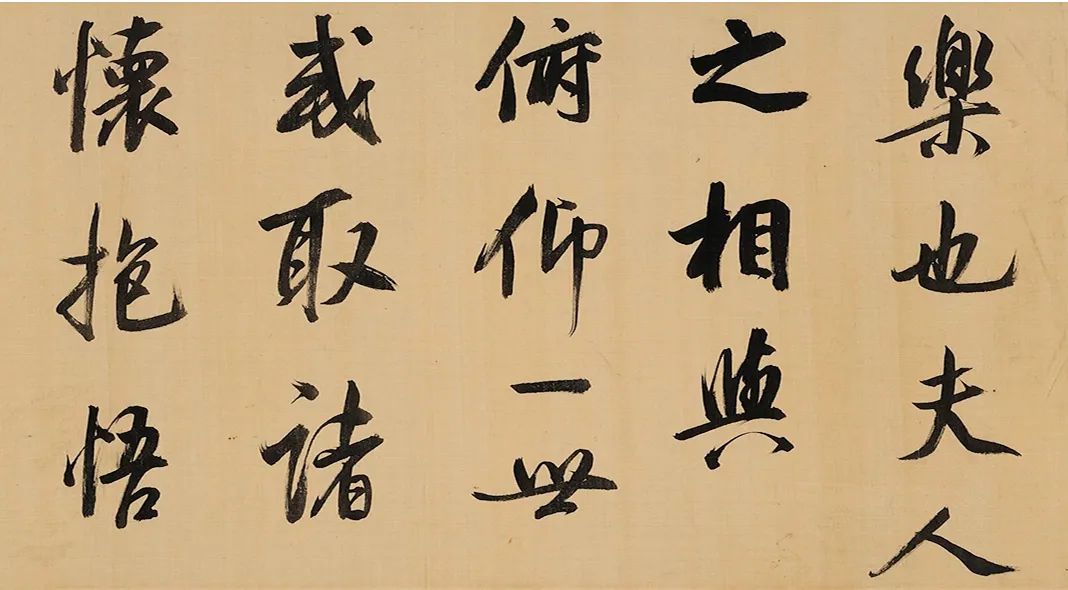 樂也夫人
之相與
俯仰一世
或取諸
懷抱悟